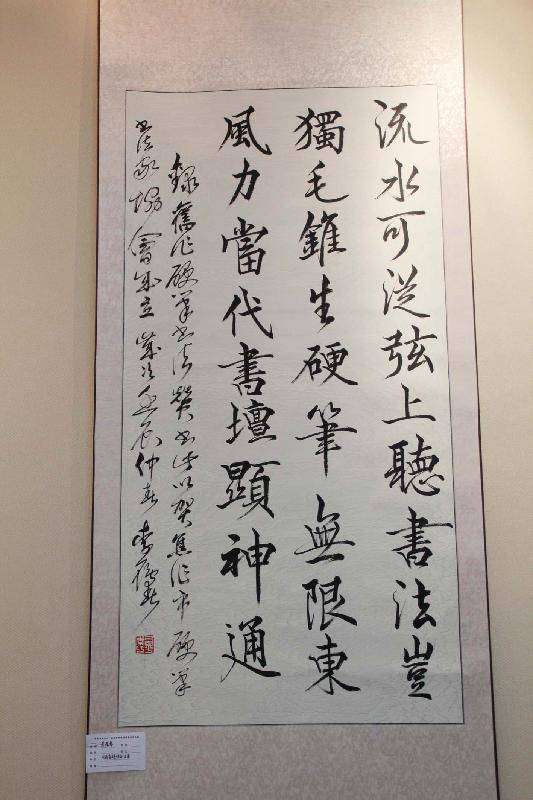 流水可從弦上聽書法豈
獨毛錐生硬筆無限東
風力當代書壇顯神通
錄舊作硬筆書法贊書此以賀焦作市硬筆
書法家協會成立歲次
仲春李